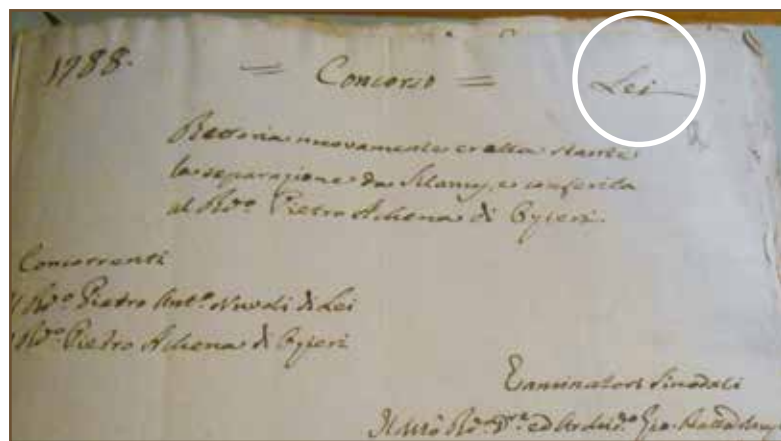 1788. = Concorso = Lei
Rettoria nuovamente eretta stante
la separazione da Silanus, e conferita
al Rdo Pietro Achena di Ozieri.
Concorrenti
Il Rdo Pietro Anto Nuvoli di Lei
Il Rdo Pietro Achena di Ozieri
Esaminatori Sinodali
Il Rdo Gio.